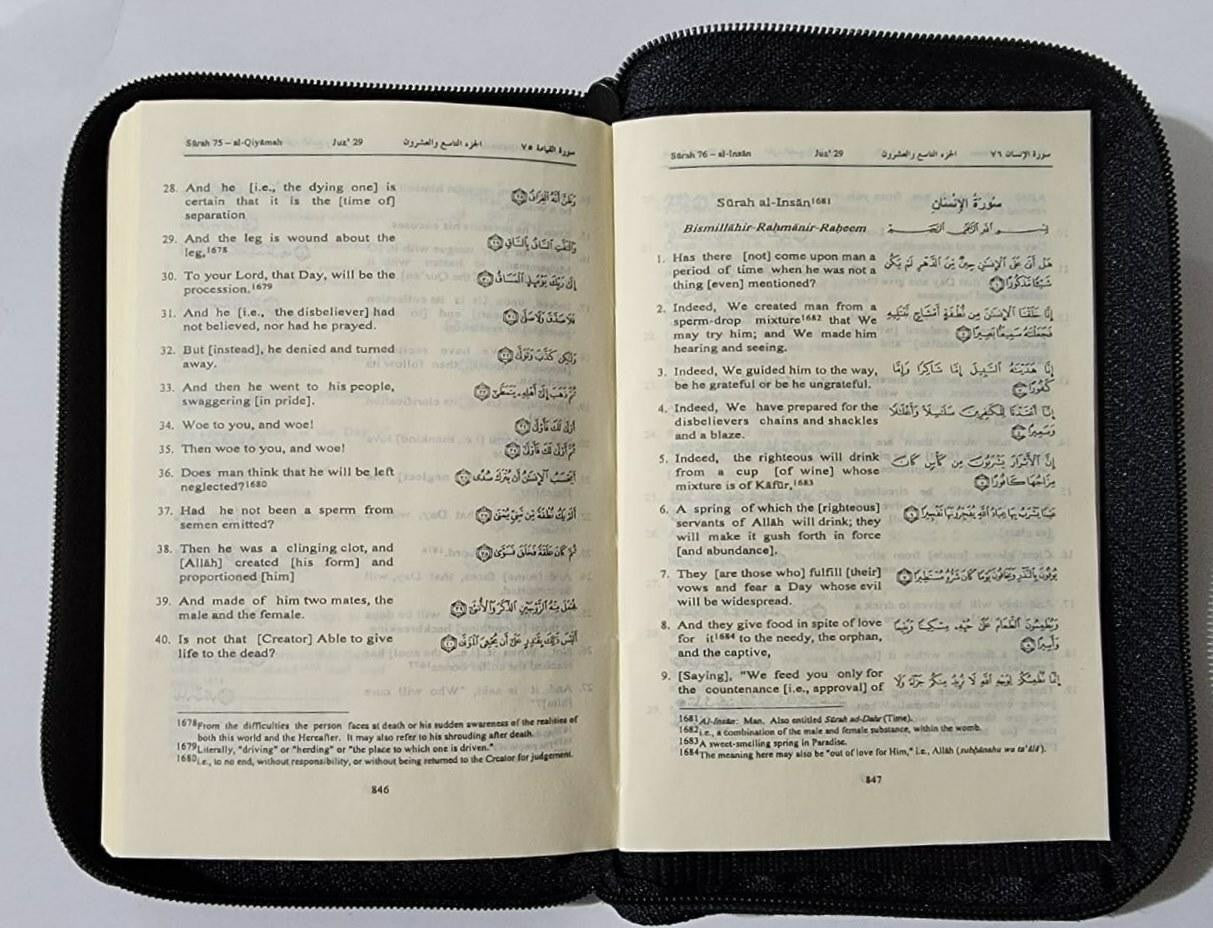 Sūrah 75 – al-Qiyāmah Juz' 29 الجزء التاسع والعشرون سورة القيامة ٧٥
28. And he [i.e., the dying one] is
certain that it is the [time of]
separation
وَظَنَّ أَنَّهُ الْفِرَاقُ ٢٨
29. And the leg is wound about the
leg,1678
وَالْتَفَّتِ السَّاقُ بِالسَّاقِ ٢٩
30. To your Lord, that Day, will be the
procession.1679
إِلَىٰ رَبِّكَ يَوْمَئِذٍ الْمَسَاقُ ٣٠
31. And he [i.e., the disbeliever] had
not believed, nor had he prayed.
فَلَا صَدَّقَ وَلَا صَلَّىٰ ٣١
32. But [instead], he denied and turned
away.
وَلَٰكِن كَذَّبَ وَتَوَلَّىٰ ٣٢
33. And then he went to his people,
swaggering [in pride].
ثُمَّ ذَهَبَ إِلَىٰ أَهْلِهِ يَتَمَطَّىٰ ٣٣
34. Woe to you, and woe!
أَوْلَىٰ لَكَ فَأَوْلَىٰ ٣٤
35. Then woe to you, and woe!
ثُمَّ أَوْلَىٰ لَكَ فَأَوْلَىٰ ٣٥
36. Does man think that he will be left
neglected?1680
أَيَحْسَبُ الْإِنسَانُ أَن يُتْرَكَ سُدًى ٣٦
37. Had he not been a sperm from
semen emitted?
أَلَمْ يَكُ نُطْفَةً مِّن مَّنِيٍّ يُمْنَىٰ ٣٧
38. Then he was a clinging clot, and
[Allāh] created [his form] and
proportioned [him]
ثُمَّ كَانَ عَلَقَةً فَخَلَقَ فَسَوَّىٰ ٣٨
39. And made of him two mates, the
male and the female.
فَجَعَلَ مِنْهُ الزَّوْجَيْنِ الذَّكَرَ وَالْأُنثَىٰ ٣٩
40. Is not that [Creator] Able to give
life to the dead?
أَلَيْسَ ذَٰلِكَ بِقَادِرٍ عَلَىٰ أَن يُحْيِيَ الْمَوْتَىٰ ٤٠
1678From the difficulties the person faces at death or his sudden awareness of the realities of
both this world and the Hereafter. It may also refer to his shrouding after death.
1679Literally, "driving" or "herding" or "the place to which one is driven."
1680i.e., to no end, without responsibility, or without being returned to the Creator for judgement.
846
Sūrah 76 – al-Insān Juz' 29 الجزء التاسع والعشرون سورة الإنسان ٧٦
Sūrah al-Insān1681 سُورَةُ الْإِنْسَانِ
Bismillāhir-Raḥmānir-Raḥeem بِسْمِ اللَّهِ الرَّحْمَٰنِ الرَّحِيمِ
1. Has there [not] come upon man a
period of time when he was not a
thing [even] mentioned?
هَلْ أَتَىٰ عَلَى الْإِنسَانِ حِينٌ مِّنَ الدَّهْرِ لَمْ يَكُن
شَيْئًا مَّذْكُورًا ١
2. Indeed, We created man from a
sperm-drop mixture1682 that We
may try him; and We made him
hearing and seeing.
إِنَّا خَلَقْنَا الْإِنسَانَ مِن نُّطْفَةٍ أَمْشَاجٍ نَّبْتَلِيهِ
فَجَعَلْنَاهُ سَمِيعًا بَصِيرًا ٢
3. Indeed, We guided him to the way,
be he grateful or be he ungrateful.
إِنَّا هَدَيْنَاهُ السَّبِيلَ إِمَّا شَاكِرًا وَإِمَّا
كَفُورًا ٣
4. Indeed, We have prepared for the
disbelievers chains and shackles
and a blaze.
إِنَّا أَعْتَدْنَا لِلْكَافِرِينَ سَلَاسِلَا وَأَغْلَالًا
وَسَعِيرًا ٤
5. Indeed, the righteous will drink
from a cup [of wine] whose
mixture is of Kāfūr,1683
إِنَّ الْأَبْرَارَ يَشْرَبُونَ مِن كَأْسٍ كَانَ
مِزَاجُهَا كَافُورًا ٥
6. A spring of which the [righteous]
servants of Allāh will drink; they
will make it gush forth in force
[and abundance].
عَيْنًا يَشْرَبُ بِهَا عِبَادُ اللَّهِ يُفَجِّرُونَهَا تَفْجِيرًا ٦
7. They [are those who] fulfill [their]
vows and fear a Day whose evil
will be widespread.
يُوفُونَ بِالنَّذْرِ وَيَخَافُونَ يَوْمًا كَانَ شَرُّهُ مُسْتَطِيرًا ٧
8. And they give food in spite of love
for it1684 to the needy, the orphan,
and the captive,
وَيُطْعِمُونَ الطَّعَامَ عَلَىٰ حُبِّهِ مِسْكِينًا وَيَتِيمًا
وَأَسِيرًا ٨
9. [Saying], "We feed you only for
the countenance [i.e., approval] of
إِنَّمَا نُطْعِمُكُمْ لِوَجْهِ اللَّهِ لَا نُرِيدُ مِنكُمْ جَزَاءً وَلَا
1681Al-Insān: Man. Also entitled Sūrah ad-Dahr (Time).
1682i.e., a combination of the male and female substance, within the womb.
1683A sweet-smelling spring in Paradise.
1684The meaning here may also be "out of love for Him," i.e., Allāh (subḥānahu wa ta'ālā).
847